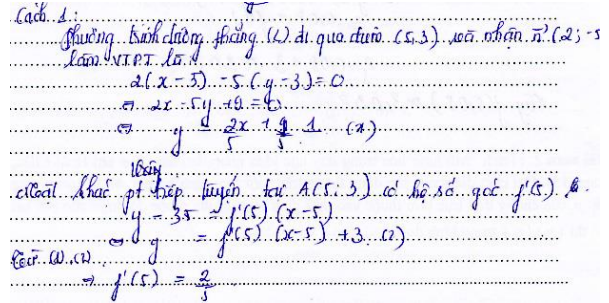 Cách 1:
Phương trình đường thẳng (L) đi qua điểm (5,3) và nhận n⃗ (2; -5
làm VTPT là
2(x - 5) - 5(y - 3) = 0
⇔ 2x - 5y + 9 = 0
⇔ y = 2x/5 + 9/5 (1)
Mặt khác pt tiếp tuyến tại A(5; 3) có hệ số góc f'(5)
y - 3 = f'(5) (x - 5)
⇔ y = f'(5) (x - 5) + 3 (2)
Từ (1), (2)
⇒ f'(5) = 2/5